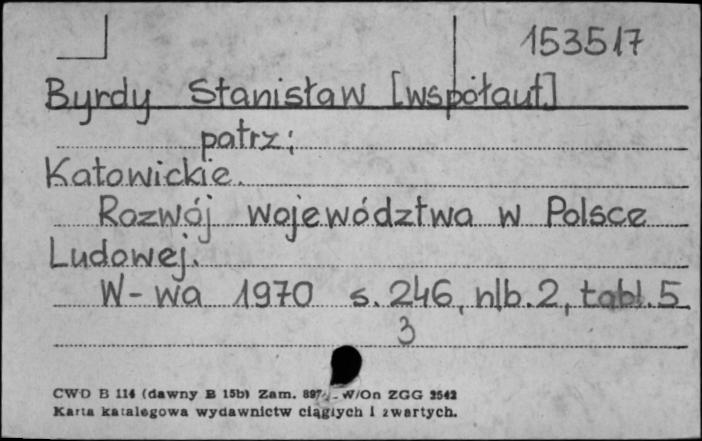 153517
Byrdy Stanisław [współaut]
patrz:
Katowickie.
Rozwój województwa w Polsce
Ludowej.
W-wa 1970 s. 246, nlb. 2, tabl. 5
3
CWD B 114 (dawny B 15b) Zam. W/On ZGG 2542
Karta katalogowa wydawnictw ciągłych i zwartych.